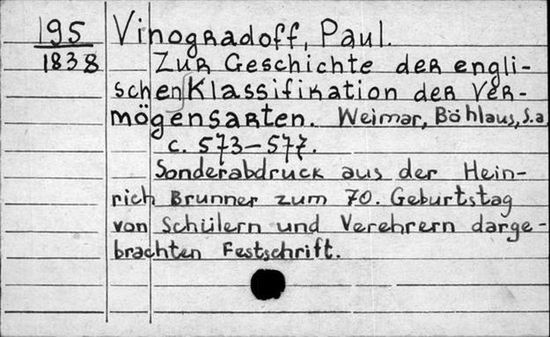 195 Vinogradoff, Paul.
1838 Zur Geschichte der engli-
schen Klassifikation der Ver-
mögensarten. Weimar, Böhlaus, s.a.
c. 573-577.
Sonderabdruck aus der Hein-
rich Brunner zum 70. Geburtstag
von Schülern und Verehrern darge-
brachten Festschrift.